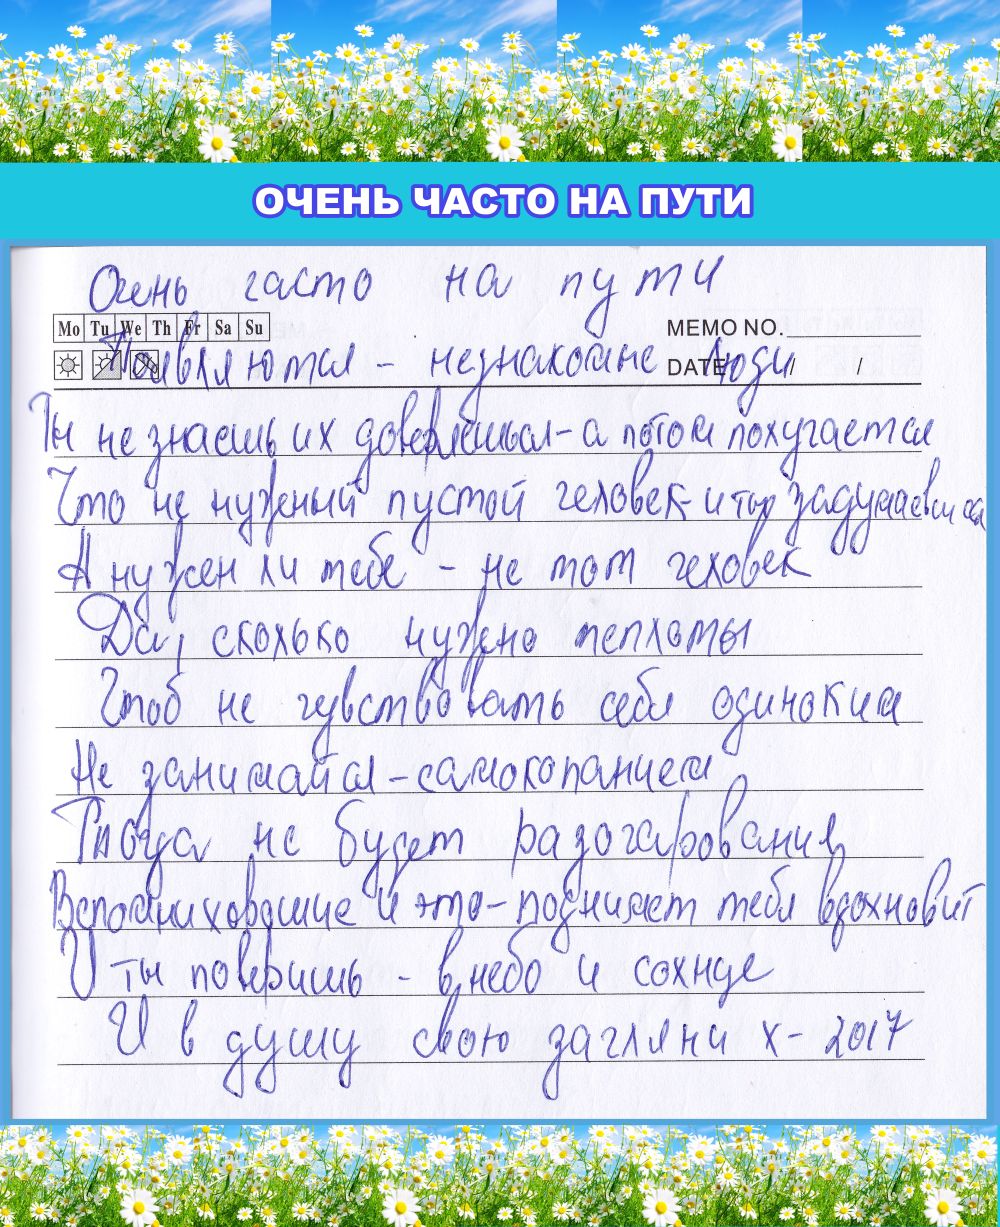 ОЧЕНЬ ЧАСТО НА ПУТИ
Очень часто на пути
Mo Tu We Th Fr Sa Su
MEMO NO.
Появляются - незнакомые люди
DATE / /
Ты не знаешь их доверяешься - а потом получается
Что не нужный пустой человек - и ты задумаешься
А нужен ли тебе - не тот человек
Да, сколько нужно теплоты
Чтоб не чувствовать себя одиноким
Не занимайся - самокопанием
Тогда не будет разочарования
Вспомни хорошие и это - поднимет тебя вдохновит
И ты поверишь - в небо и солнце
И в душу свою загляни х - 2017